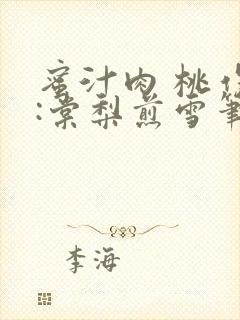 蜜汁肉桃
:棠梨煎雪筆
李海